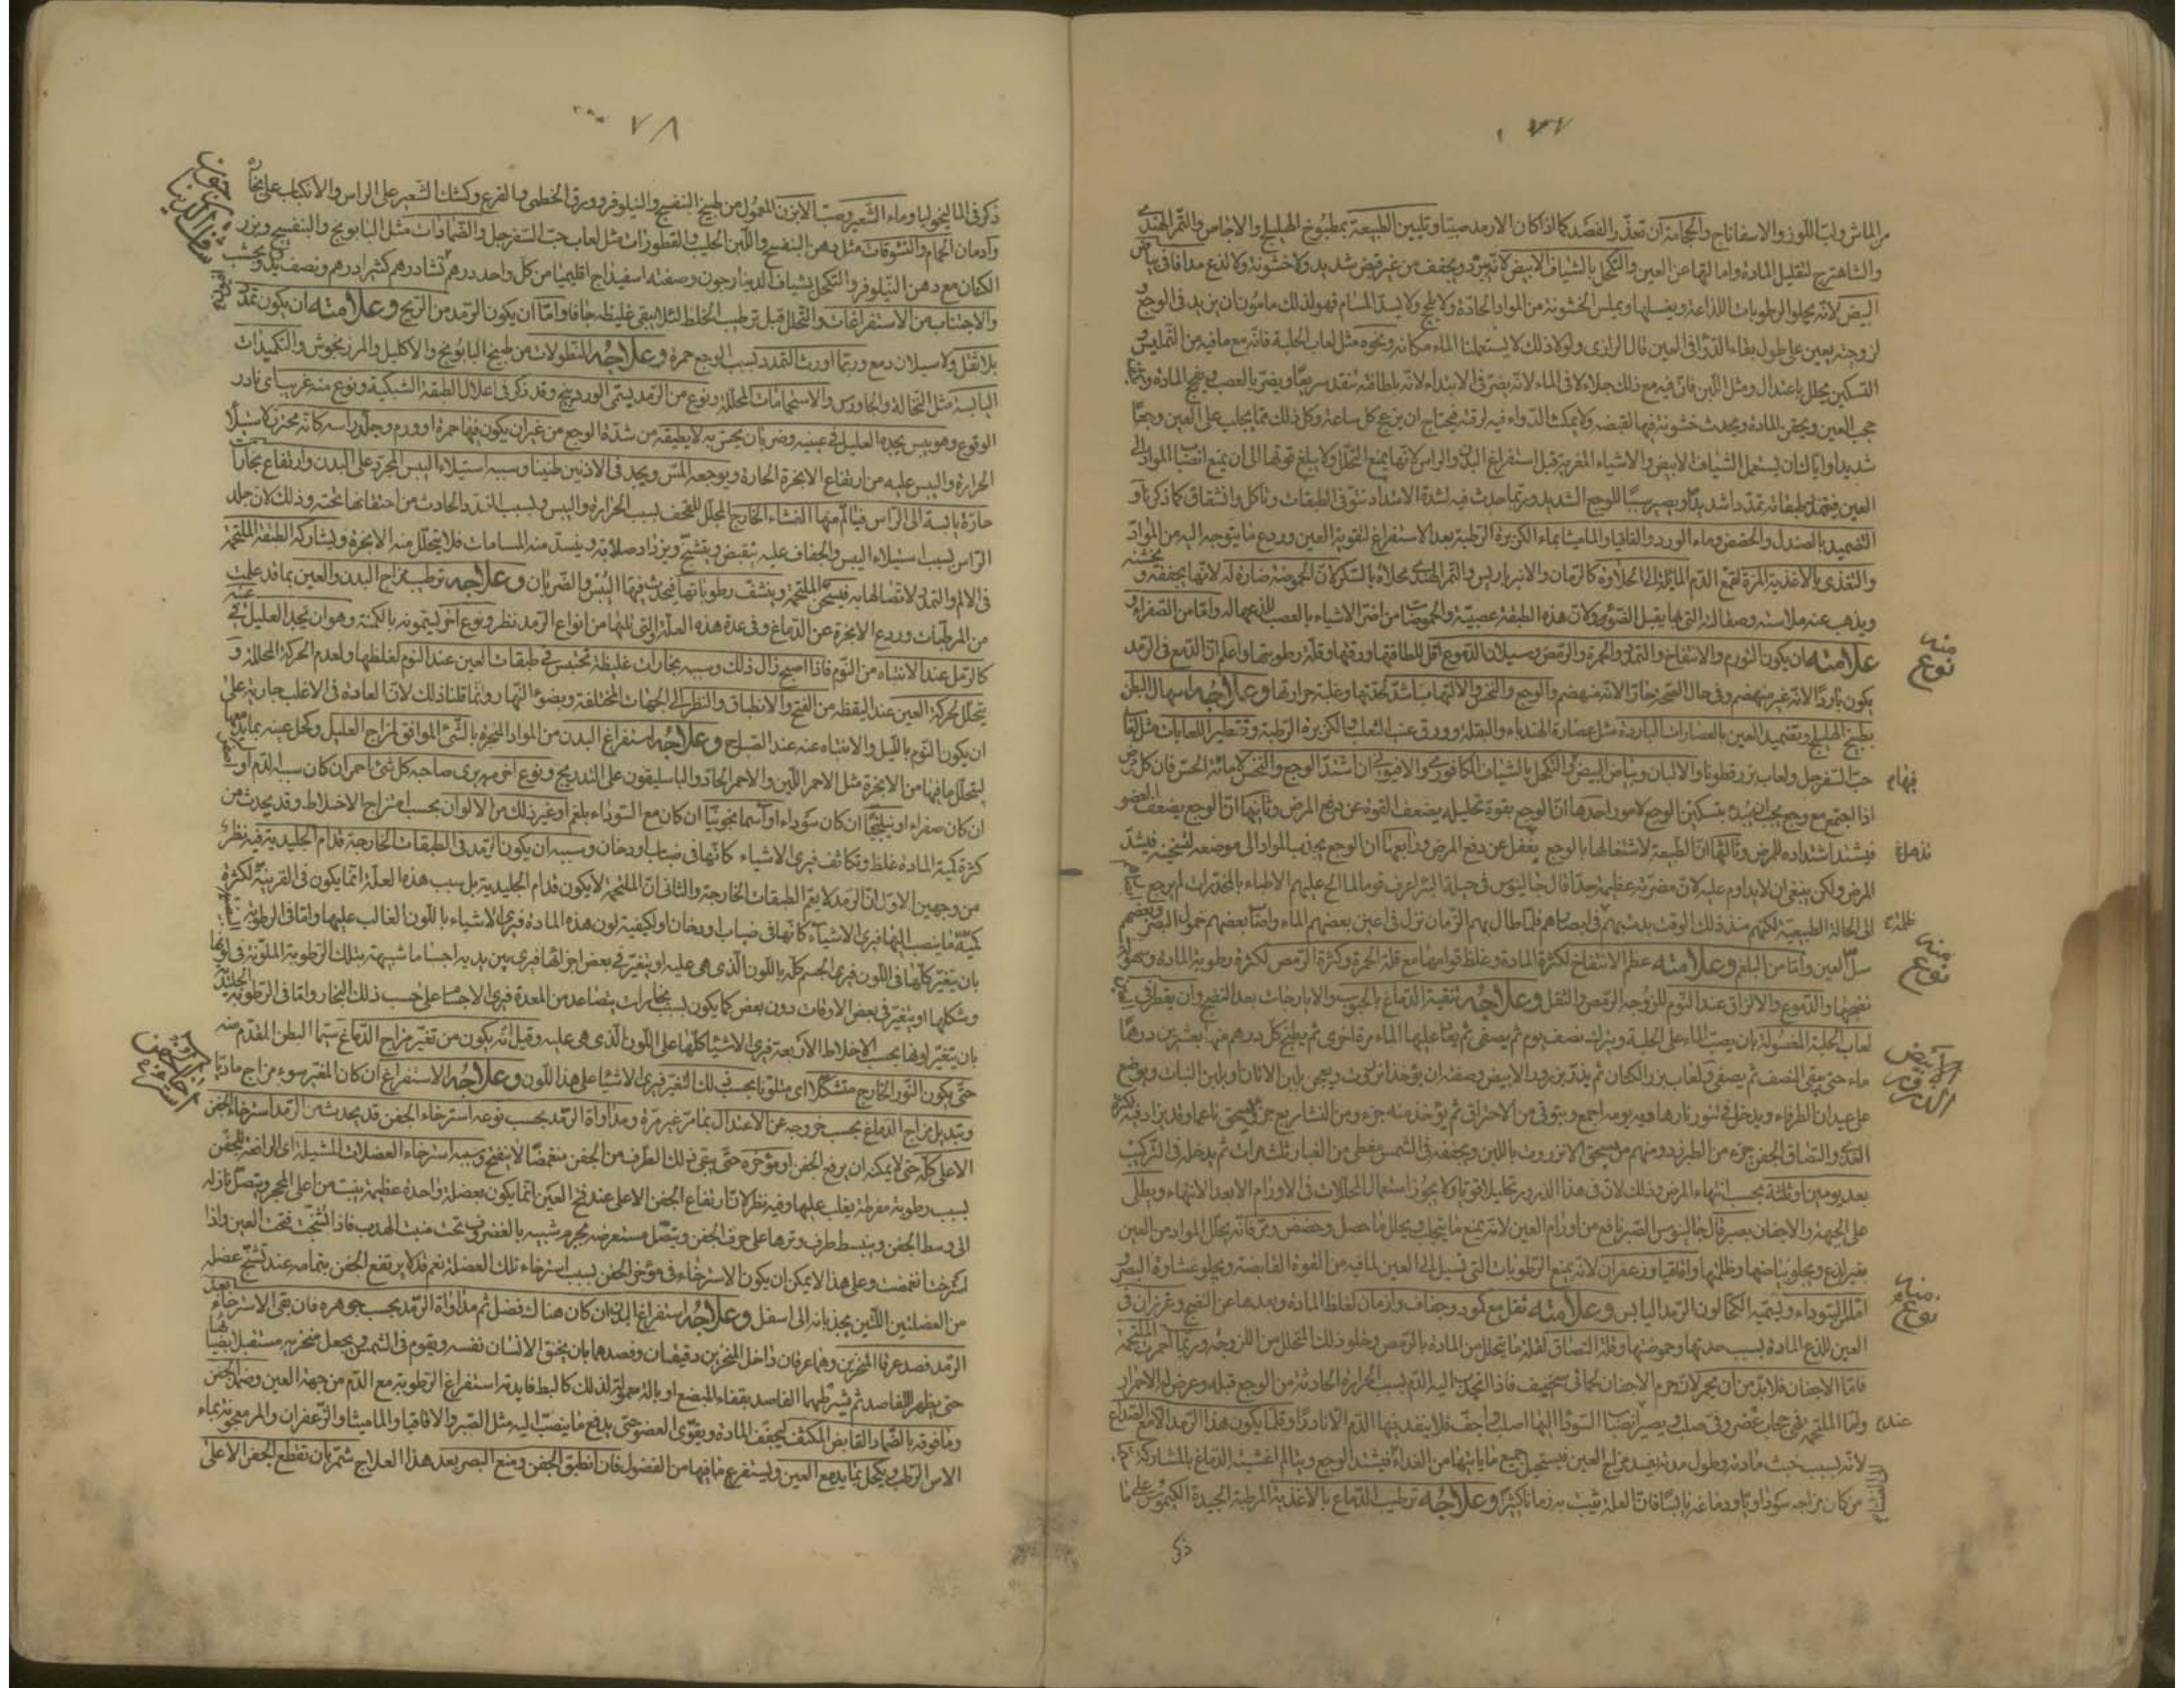 ٧٧
من الماش ولب اللوز والاسفاناج والحجامة ان تعذر الفصد كما اذا كان الارمد صبيا وتليين الطبيعة بمطبوخ الهليلج والاجاص والتمر الهندى
والشاهترج لتقليل المادة وامالتها عن العين والتكحل بالشياف الابيض لانه يبرد ويجفف من غير قبض شديد ولا خشونة ولا لذع مدافا فى بياض
البيض لانه يجلو الرطوبات اللذاعة ويغسلها ويملس الخشونة من المواد الحادة ولا يلحج ولا يسد المسام فهو لذلك مامون ان يزيد فى الوجع
لزوجته يعين على طول بقاء الدواء فى العين قال الرازى ولولا ذلك لا يستعملنا الماء مكانه ونحوه مثل لعاب الحلبة فانه مع ما فيه من التمليس
التسكين يحلل باعتدال ومثل اللبن فان فيه مع ذلك جلاء لا فى الماء لانه يضر فى الابتداء لانه بلطافته ينفذ سريعا ويضر بالعصب ويفجج المادة
حجب العين ويحقن المادة ويحدث خشونة فيها لقبضه ولا يمكث الدواء فيه لرقته فيحتاج ان يزعج كل ساعة وكل ذلك مما يجلب على العين وجعا
شديدا واياك ان يستعمل الشياف الابيض والاشياء المغرية قبل استفراغ البدن والراس لانها يمنع التحلل ولا يبلغ قوتها الى ان يمنع انصباب المواد الى
العين فيتمدد طبقاته تمددا شديدا ويصير سببا للوجع الشديد وربما حدث فيه لشدة الامتداد نتو فى الطبقات وتاكل وانشقاق كما ذكرنا و
التضميد بالصندل والحضض وماء الورد والقاقيا والماميثا بماء الكزبرة الرطبة بعد الاستفراغ لتقوية العين وردع ما يتوجه اليه من المواد
والتغذى بالاغذية المزة لقمع الدم المائلة الى الحلاوة كالرمان والانبرباريس والتمر الهندى محلاة بالسكر لان الحموضة ضارة له لانها يجففه و يخشنه
ويذهب عنه ملاسته وصقالته التى بها يقبل الضوء ولان هذه الطبقة عصبية والحموضات من اضر الاشياء بالعصب للذعها له واما من الصفراء
علامته ان يكون التورم والانتفاخ والتمدد والحمرة والرمص وسيلان الدموع اقل للطافتها ورقتها وقلة رطوبتها واعلم ان الدمع فى الرمد
منه نوع
يكون باردا لانه غير منهضم وفى حال الصحة حارا لانه منهضم والوجع والنخس والالتهاب اشد لحدتها وغلبة حرارتها وعلاجه اسهال البطن
بطبيخ الهليلج وتضميد العين بالعصارات الباردة مثل عصارة الهندباء والبقلة وورق عنب الثعلب والكزبرة الرطبة وتقطير اللعابات مثل لعاب
حب السفرجل ولعاب بزر قطونا والالبان وبياض البيض والتكحل بالشياف الكافورى والافيونى ان اشتد الوجع والنخس لاماتة الحس فان كل مرض
اذا اجتمع مع وجع يجب ان يبدا بتسكين الوجع لامور احدها ان الوجع بقوة تحليله يضعف القوة عن دفع المرض وثانيها ان الوجع يضعف العضو
فيشتد استعداده للمرض وثالثها ان الطبيعة لاشتغالها بالوجع يغفل عن دفع المرض ورابعها ان الوجع يجذب المواد الى موضعه لتسخينه فيشتد
المرض ولكن ينبغى ان لا يداوم عليه لان مضرته عظيمة جدا قال جالينوس فى حيلة البرء اعرف قوما لما الح عليهم الاطباء بالمخدرات لم يرجع
الى الحالة الطبيعية لكنهم منذ ذلك الوقت بدت بهم فى ابصارهم فلما طال بهم الزمان نزل فى اعين بعضهم الماء واصاب بعضهم خمول البصر وبعضهم
ظلمة
سل العين واما من البلغم وعلامته عظم الانتفاخ لكثرة المادة وغلظ قوامها مع قلة الحمرة وكثرة الرمص لكثرة رطوبة المادة وسهولة
منه نوع
نضجها والدموع والالتزاق عند النوم للزوجة الرمص والثقل وعلاجه تنقية الدماغ بالحبوب والايارجات بعد النضج وان يقطر فى
لعاب الحلبة المغسولة بان يصب الماء على الحلبة ويترك نصف يوم ثم يصفى ثم يعاد عليها الماء مرة اخرى ثم يطبخ كل درهم منها بعشرين درهما
ماء حتى يبقى النصف ثم يصفى ولعاب بزر الكتان ثم يذر بذرور الابيض وصفته ان يؤخذ انزروت ويعجن بلبن الاتان او بلبن النبات ويوضع
الذرور الابيض
على عيدان الطرفاء ويدخل فى تنور نارها فيه يومه اجمع ويتوقى من الاحتراق ثم يؤخذ منه جزء ومن النشا ربع جزء يسحق ناعما وقد يزاد فيه
القذى والتصاق الجفن جزء من الطبرزد ومنهم من يسحق الانزروت باللبن ويجففه فى الشمس مغطى من الغبار ثلث مرات ثم يدخله فى التركيب
بعد يومين او ثلثة بحسب انتهاء المرض وذلك لان فى هذا الذرور تحليلا قويا ولا يجوز استعمال المحللات فى الاورام الا بعد الانتهاء ويطلى
على الجبهة والاجفان بصبر قال جالينوس الصبر نافع من اورام العين لانه يمنع ما يتحلب ويحلل ما حصل وحضض ومر فانه يحلل المواد من العين
بغير لذع ويجلو بياضها وظلمتها واقاقيا وزعفران لانه يمنع الرطوبات التى تسيل الى العين لما فيه من القوة القابضة ويجلو غشاوة البصر
اما من السوداء ويسميه الكحالون الرمد اليابس وعلامته ثقل مع كمودة وجفاف وازمان لغلظ المادة وبعدها عن النضج وغرزان فى
منه نوع
العين للذع المادة بسبب حدتها وحموضتها وقلة التصاق لقلة ما يتحلل من المادة بالرمص وخلو ذلك المتحلل من اللزوجة وربما احمرت الملتحمة
فاما الاجفان فلا بد من ان يحمر لان جرم الاجفان لحمانى سخيف فاذا انجذب اليه الدم بسبب الحرارة الحادثة من الوجع قبله وعرض له الاحمرار
واما الملتحمة فهى حجاب غضروفى صلب ويصير انصباب السوداء اليها اصلب واجف فلا ينفذ فيها الدم الا نادرا وقلما يكون هذا الرمد الا مع الصداع
لانه بسبب خبث مادته وطول مدته يفسد مزاج العين فيستحيل جميع ما ياتيها من الغذاء فيشتد الوجع ويتالم اغشية الدماغ بالمشاركة
من كان مزاجه سوداويا ودماغه يابسا فان العلة تثبت به زمانا كثيرا وعلاجه ترطيب الدماغ بالاغذية المرطبة الجيدة الكيموس على ما
ذكر
٧٨
ذكر فى الماليخوليا وماء الشعير وصب الابزن المعمول من طبيخ البنفسج والنيلوفر وورق الخطمى والقرع وكشك الشعير على الراس والانكباب على بخاره
وادمان الحمام والنشوقات مثل دهن البنفسج واللبن الحليب والقطورات مثل لعاب حب السفرجل والضمادات مثل البابونج والبنفسج وبزر
الكتان مع دهن النيلوفر والتكحل بشياف الدينارجون وصفته اسفيداج اقليميا من كل واحد درهم نشا درهم كثيرا درهم ونصف
والاجتناب من الاستفراغات والتحلل قبل ترطيب الخلط لئلا يبقى غليظه جافا واما ان يكون الرمد من الريح وعلامته ان يكون تمدد
بلا ثقل ولا سيلان دمع وربما اورث التمدد بسبب الوجع حمرة وعلاجه النطولات من طبيخ البابونج والاكليل والمرزنجوش والتكميدات
اليابسة مثل النخالة والجاورس والاستحمامات المحللة ونوع من الرمد يسمى الوردينج وقد ذكر فى اعلال الطبقة الشبكية ونوع منه غريب اى نادر
الوقوع وهو يبس يجده العليل فى عينيه وضربان يحس به لا يطيقه من شدة الوجع من غير ان يكون فيها حمرة او ورم وجلد راسه كانه محترق لاستيلاء
الحرارة واليبس عليه من ارتفاع الابخرة الحارة ويوجعه المس ويجد فى الاذنين طنينا وسببه استيلاء اليبس المجرد على البدن وارتفاع بخارات
حارة يابسة الى الراس فيتالم منها الغشاء الخارج المجلل للقحف بسبب الحرارة واليبس وبسبب التمدد الحادث من احتقانها تحته وذلك لان جلد
الراس بسبب استيلاء اليبس والجفاف عليه يتقبض ويتشنج ويزداد صلابة وينسد منه المسامات فلا يتحلل منه الابخرة ويشاركه الطبقة الملتحمة
فى الالم والتمدد لاتصالها به فيسخن الملتحمة وينشف رطوباتها فيحدث فيها اليبس والضربان وعلاجه ترطيب مزاج البدن والعين بما قد علمت
من المرطبات وردع الابخرة عن الدماغ وفى عدة هذه العلة والتى تليها من انواع الرمد نظر ونوع اخر يسمونه بالكمنة وهو ان يجد العليل فى عينه
كالرمل عند الانتباه من النوم فاذا اصبح زال ذلك وسببه بخارات غليظة تحتبس فى طبقات العين عند النوم لغلظها ولعدم الحركة المحللة و
يتحلل لحركة العين عند اليقظة من الفتح والانطباق والنظر الى الجهات المختلفة وبضوء النهار وانما قلنا ذلك لان العادة فى الاغلب جارية على
ان يكون النوم بالليل والانتباه عنه عند الصباح وعلاجه استفراغ البدن من المواد المبخرة بالشئ الموافق لمزاج العليل وكحل عينه بما يدمعها
ليتحلل ما فيها من الابخرة مثل الاحمر اللين والاحمر الحاد والباسليقون على التدريج ونوع اخر منه يرى صاحبه كل شئ احمر ان كان سببه الدم او اصفر
ان كان صفراء او نيلنجيا ان كان سوداء او اسمانجونيا ان كان مع السوداء بلغم او غير ذلك من الالوان بحسب امتزاج الاخلاط وقد يحدث من
كثرة كمية المادة غلظ وتكاثف فيرى الاشياء كانها فى ضباب او دخان وسببه ان يكون الرمد فى الطبقات الخارجة قدام الجليدية وفيه نظر
من وجهين الاول ان الرمد لا يعم الطبقات الخارجة والثانى ان الملتحمة لا يكون قدام الجليدية بل سبب هذه العلة انما يكون فى القرنية لكثرة
كمية ما ينصب اليها فيرى الاشياء كانها فى ضباب او دخان او لكيفية لون هذه المادة فيرى الاشياء باللون الغالب عليها واما فى الرطوبة
بان يتغير كلها فى اللون فيرى الجسم كله باللون الذى هى عليه او يتغير فى بعض اجزائها فيرى بين يديه اجساما شبيهة بتلك الرطوبة الملونة فى لونها
وشكلها او يتغير فى بعض الاوقات دون بعض كما يكون بسبب بخارات يتصاعد من المعدة فيرى الاجسام على حسب ذلك البخار واما فى الرطوبة الجليدية
بان يتغير لونها بحسب الاخلاط الاربعة فيرى الاشياء كلها على اللون الذى هى عليه وقيل انه يكون من تغير مزاج الدماغ سيما البطن المقدم منه
حتى يكون النور الخارج متشكلا اى متلونا بحسب ذلك التغير فيرى الاشياء على هذا اللون وعلاجه الاستفراغ ان كان المغير سوء مزاج ماديا
وتبديل مزاج الدماغ بحسب خروجه عن الاعتدال بما مر غير مرة ومداواة الرمد بحسب نوعه استرخاء الجفن قد يحدث من الرمد استرخاء الجفن
استرخاء الجفن
الاعلى كله حتى لا يمكنه ان يرفع الجفن او مؤخره حتى يبقى ذلك الطرف من الجفن منغمضا لا ينفتح وسببه استرخاء العضلات المشيلة اى الرافعة للجفن
بسبب رطوبة مفرطة يغلب عليها وفيه نظر لان ارتفاع الجفن الاعلى عند فتح العين انما يكون بعضلة واحدة عظيمة ينبت من اعلى المحجر ويتصل نازلة
الى وسط الجفن وينبسط طرف وترها على حرف الجفن ويتصل مستعرضة بجرم شبيه بالغضروف تحت منبت الهدب فاذا تشنجت فتحت العين واذا
استرخت انغمضت وعلى هذا لا يمكن ان يكون الاسترخاء فى مؤخر الجفن بسبب استرخاء تلك العضلة نعم قد لا يرتفع الجفن بتمامه عند تشنج عضلة
من العضلتين اللتين يجذبانه الى اسفل وعلاجه استفراغ البدن ان كان هناك فضل ثم مداواة الرمد بحسب جوهره فان بقى الاسترخاء بعد
الرمد فصد عرقا المنخرين وهما عرقان داخل المنخرين دقيقان وفصدهما بان يخنق الانسان نفسه ويقوم فى الشمس ويجعل منخريه مستقبل
حتى يظهر للفاصد ثم شرطهما الفاصد بقفاء المبضع او بالة معمولة لذلك كالبط فايدته استفراغ الرطوبة مع الدم من جهة العين وضمد الجفن
وما فوقه بالضماد القابض المكثف ليجفف المادة ويقوى العضو حتى يدفع ما ينصب اليه مثل الصبر والاقاقيا والماميثا والزعفران والمر معجونة بماء
الاس الرطب ويكحل بما يدمع العين ويستفرغ ما فيها من الفضول فان انطبق الجفن ومنع البصر بعد هذا العلاج شمر بان تقطع الجفن الاعلى